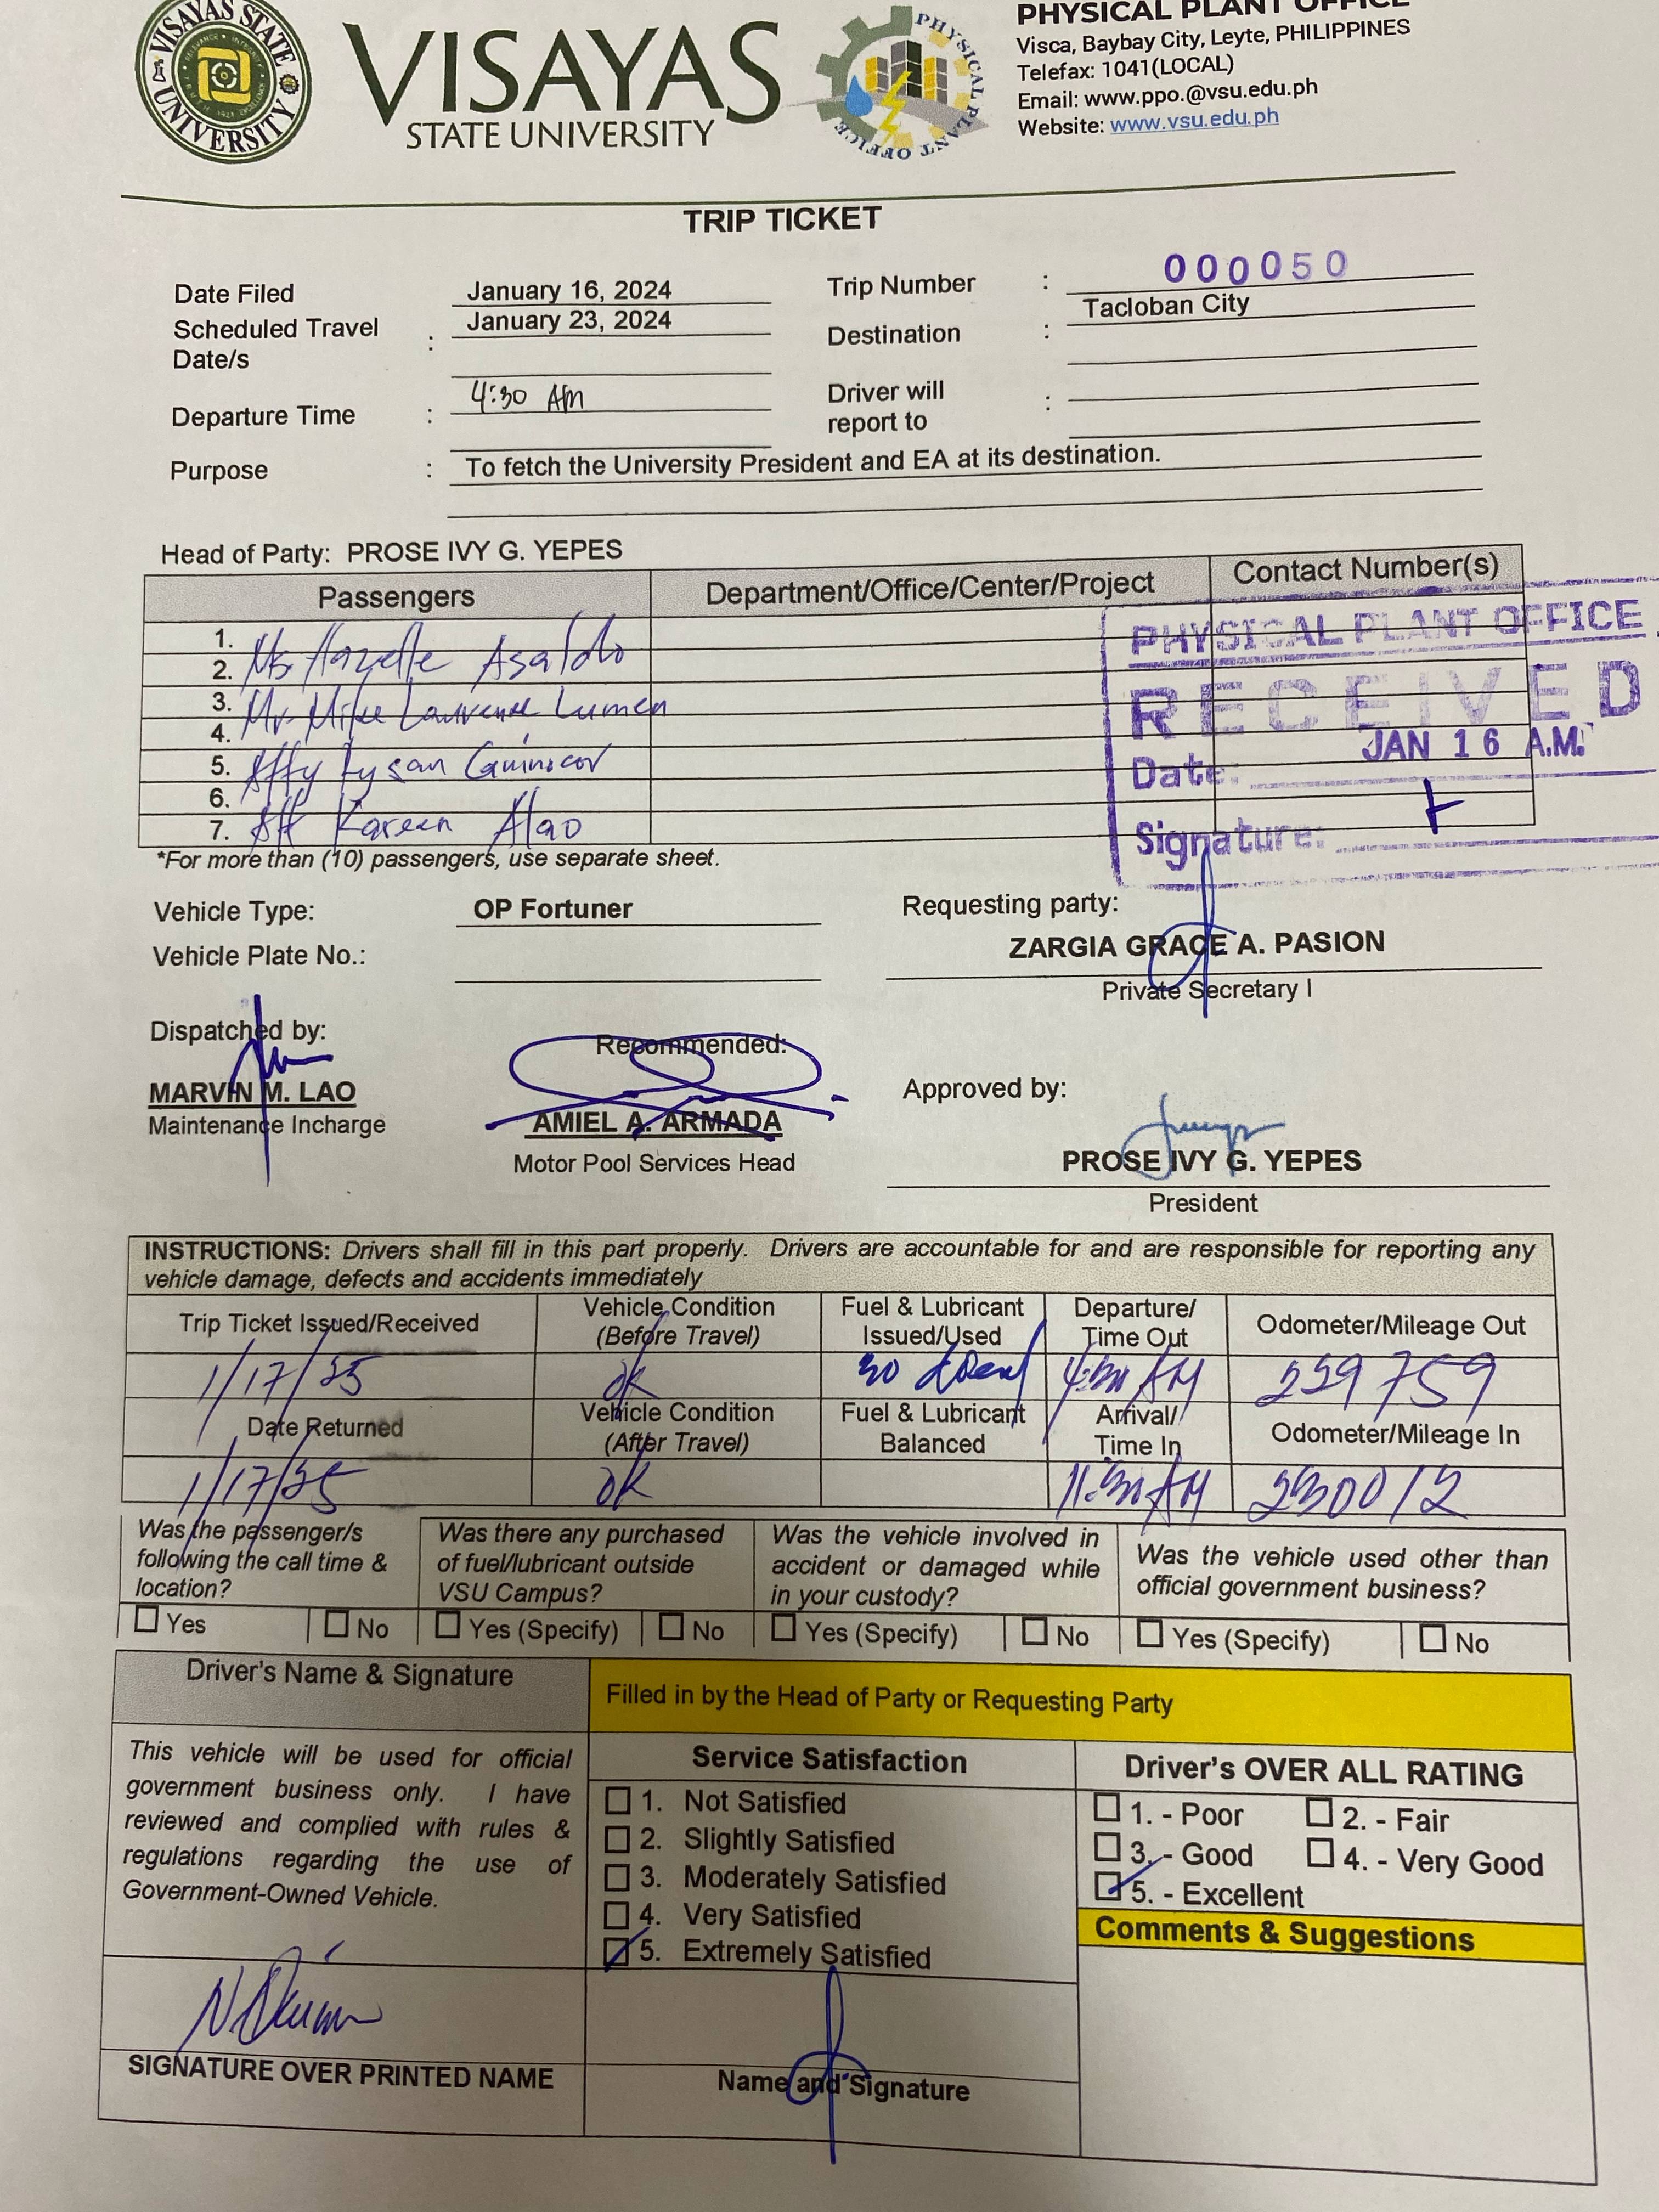 VISAYAS STATE UNIVERSITY
VISAYAS
STATE UNIVERSITY
PHYSICAL PLANT OFFICE
PHYSICAL PLANT OFFICE
Visca, Baybay City, Leyte, PHILIPPINES
Telefax: 1041(LOCAL)
Email: www.ppo.@vsu.edu.ph
Website: www.vsu.edu.ph
TRIP TICKET
Date Filed January 16, 2024 Trip Number : 000050
Scheduled Travel Date/s : January 23, 2024 Destination : Tacloban City
Departure Time : 4:30 AM Driver will report to :
Purpose : To fetch the University President and EA at its destination.
Head of Party: PROSE IVY G. YEPES
Passengers Department/Office/Center/Project Contact Number(s)
1.
2. Ms Hazelle Asaldo
3.
4. Mr. Mike Laurence Lumen
5. Atty Lysan
6.
7. Kareen Alao
PHYSICAL PLANT OFFICE
RECEIVED
Date: JAN 16 A.M.
Signature:
*For more than (10) passengers, use separate sheet.
Vehicle Type: OP Fortuner Requesting party:
Vehicle Plate No.: ZARGIA GRACE A. PASION
Private Secretary I
Dispatched by: Recommended: Approved by:
MARVIN M. LAO AMIEL A. ARMADA PROSE IVY G. YEPES
Maintenance Incharge Motor Pool Services Head President
INSTRUCTIONS: Drivers shall fill in this part properly. Drivers are accountable for and are responsible for reporting any
vehicle damage, defects and accidents immediately
Trip Ticket Issued/Received Vehicle Condition (Before Travel) Fuel & Lubricant Issued/Used Departure/ Time Out Odometer/Mileage Out
1/17/25 OK 30 4:30 AM 229759
Date Returned Vehicle Condition (After Travel) Fuel & Lubricant Balanced Arrival/ Time In Odometer/Mileage In
1/17/25 OK 11:30 AM 230012
Was the passenger/s following the call time & location?
Was there any purchased of fuel/lubricant outside VSU Campus?
Was the vehicle involved in accident or damaged while in your custody?
Was the vehicle used other than official government business?
Yes No Yes (Specify) No Yes (Specify) No Yes (Specify) No
Driver's Name & Signature Filled in by the Head of Party or Requesting Party
This vehicle will be used for official
government business only. I have
reviewed and complied with rules &
regulations regarding the use of
Government-Owned Vehicle.
SIGNATURE OVER PRINTED NAME
Service Satisfaction
1. Not Satisfied
2. Slightly Satisfied
3. Moderately Satisfied
4. Very Satisfied
5. Extremely Satisfied
Name and Signature
Driver's OVER ALL RATING
1. - Poor 2. - Fair
3. - Good 4. - Very Good
5. - Excellent
Comments & Suggestions